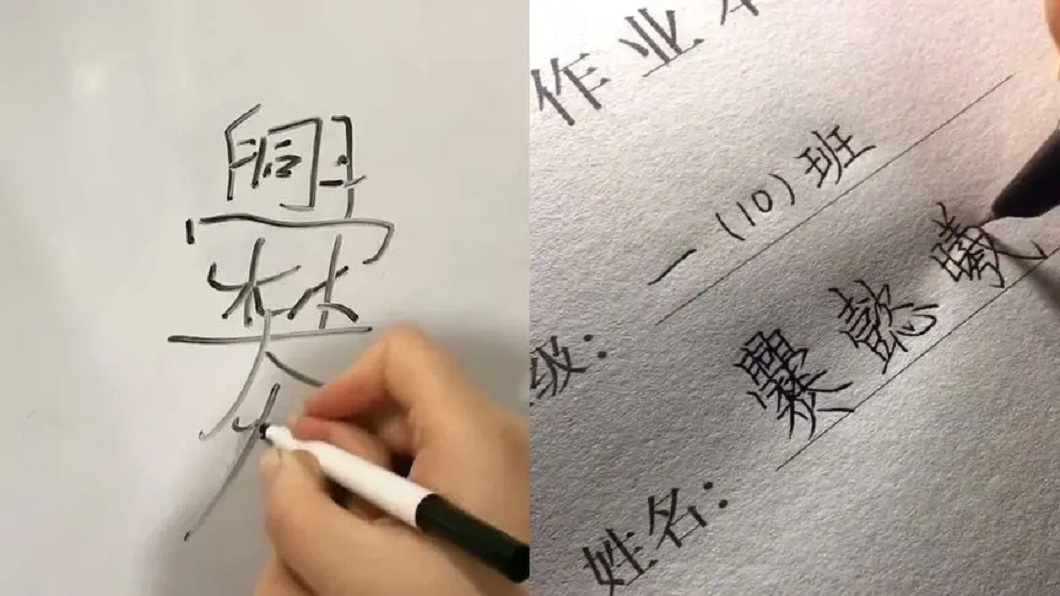 爨
作业
一（10）班
级：
爨懿
姓名：